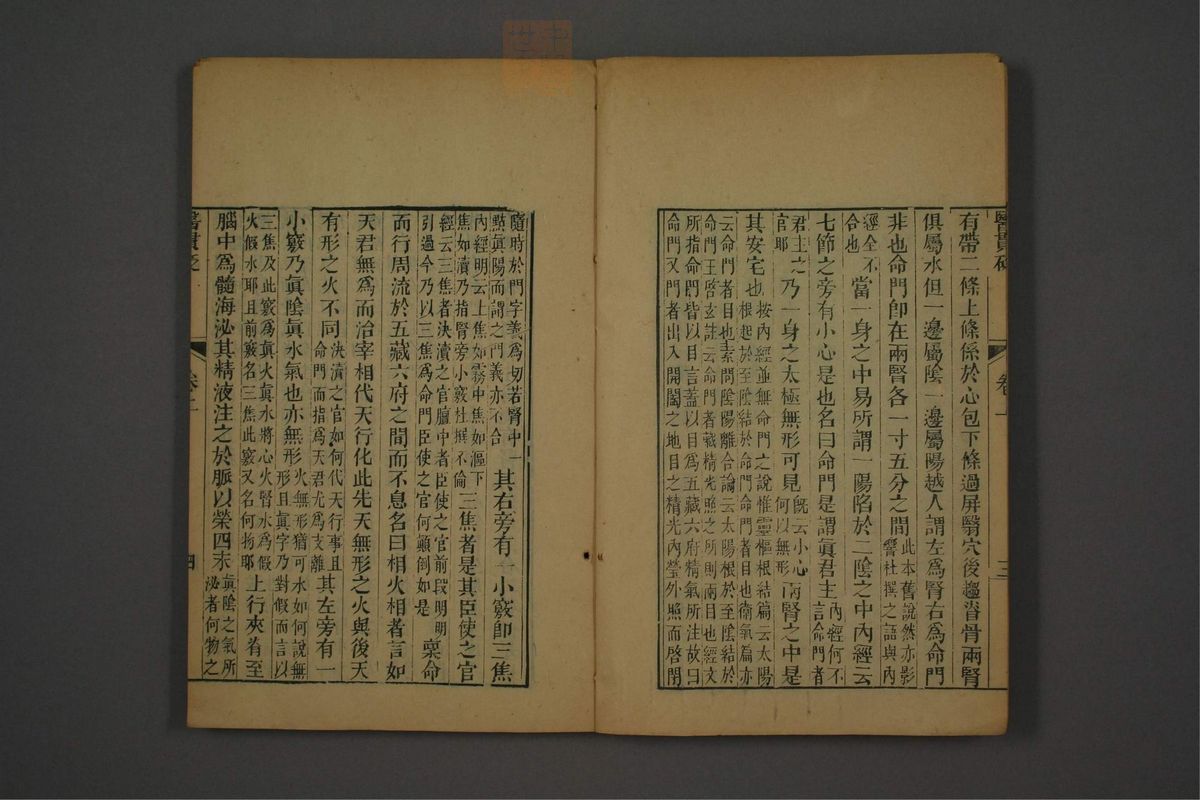 醫貫砭
卷一
三
有帶二條上條係於心包下條過屏翳穴後趨脊骨兩腎
俱屬水但一邊屬陰一邊屬陽越人謂左爲腎右爲命門
非也命門卽在兩腎各一寸五分之間
此本舊說然亦影
響杜撰之語與內
經全不
合也
當一身之中易所謂一陽陷於二陰之中內經云
七節之旁有小心是也名曰命門是謂眞君主
內經何不
言命門者
君主之
官耶
乃一身之太極無形可見
旣云小心
何以無形
兩腎之中是
其安宅也
按內經並無命門之說惟靈樞根結篇云太陽
根起於至陰結於命門命門者目也衛氣篇亦
云命門者目也素問陰陽離合論云太陽根於至陰結於
命門王啓玄註云命門者藏精光照之所則兩目也經文
所指命門皆以目言蓋以目爲五藏六府精氣所注故曰
命門又門者出入開闔之地目之精光內瑩外照而啓閉
隨時於門字義爲切若腎中一
點眞陽而謂之門義亦不合
其右旁有一小竅卽三焦
內經明云上焦如霧中焦如漚下
焦如瀆乃指腎旁小竅杜撰不倫
三焦者是其臣使之官
經云三焦者決瀆之官膻中者臣使之官前段明明
引過今乃以三焦爲命門臣使之官何顚倒如是
稟命
而行周流於五藏六府之間而不息名曰相火相者言如
天君無爲而治宰相代天行化此先天無形之火與後天
有形之火不同
決瀆之官如何代天行事且
命門而指爲天君尤爲支離
其左旁有一
小竅乃眞陰眞水氣也亦無形
火無形猶可水如何說無
形且眞字乃對假而言以
三焦及此竅爲眞火眞水將心火腎水爲假
火假水耶且前竅名三焦此竅又名何物耶
上行夾脊至
腦中爲髓海泌其精液注之於脈以榮四末
眞陰之氣所
泌者何物之
醫貫砭
卷一
四